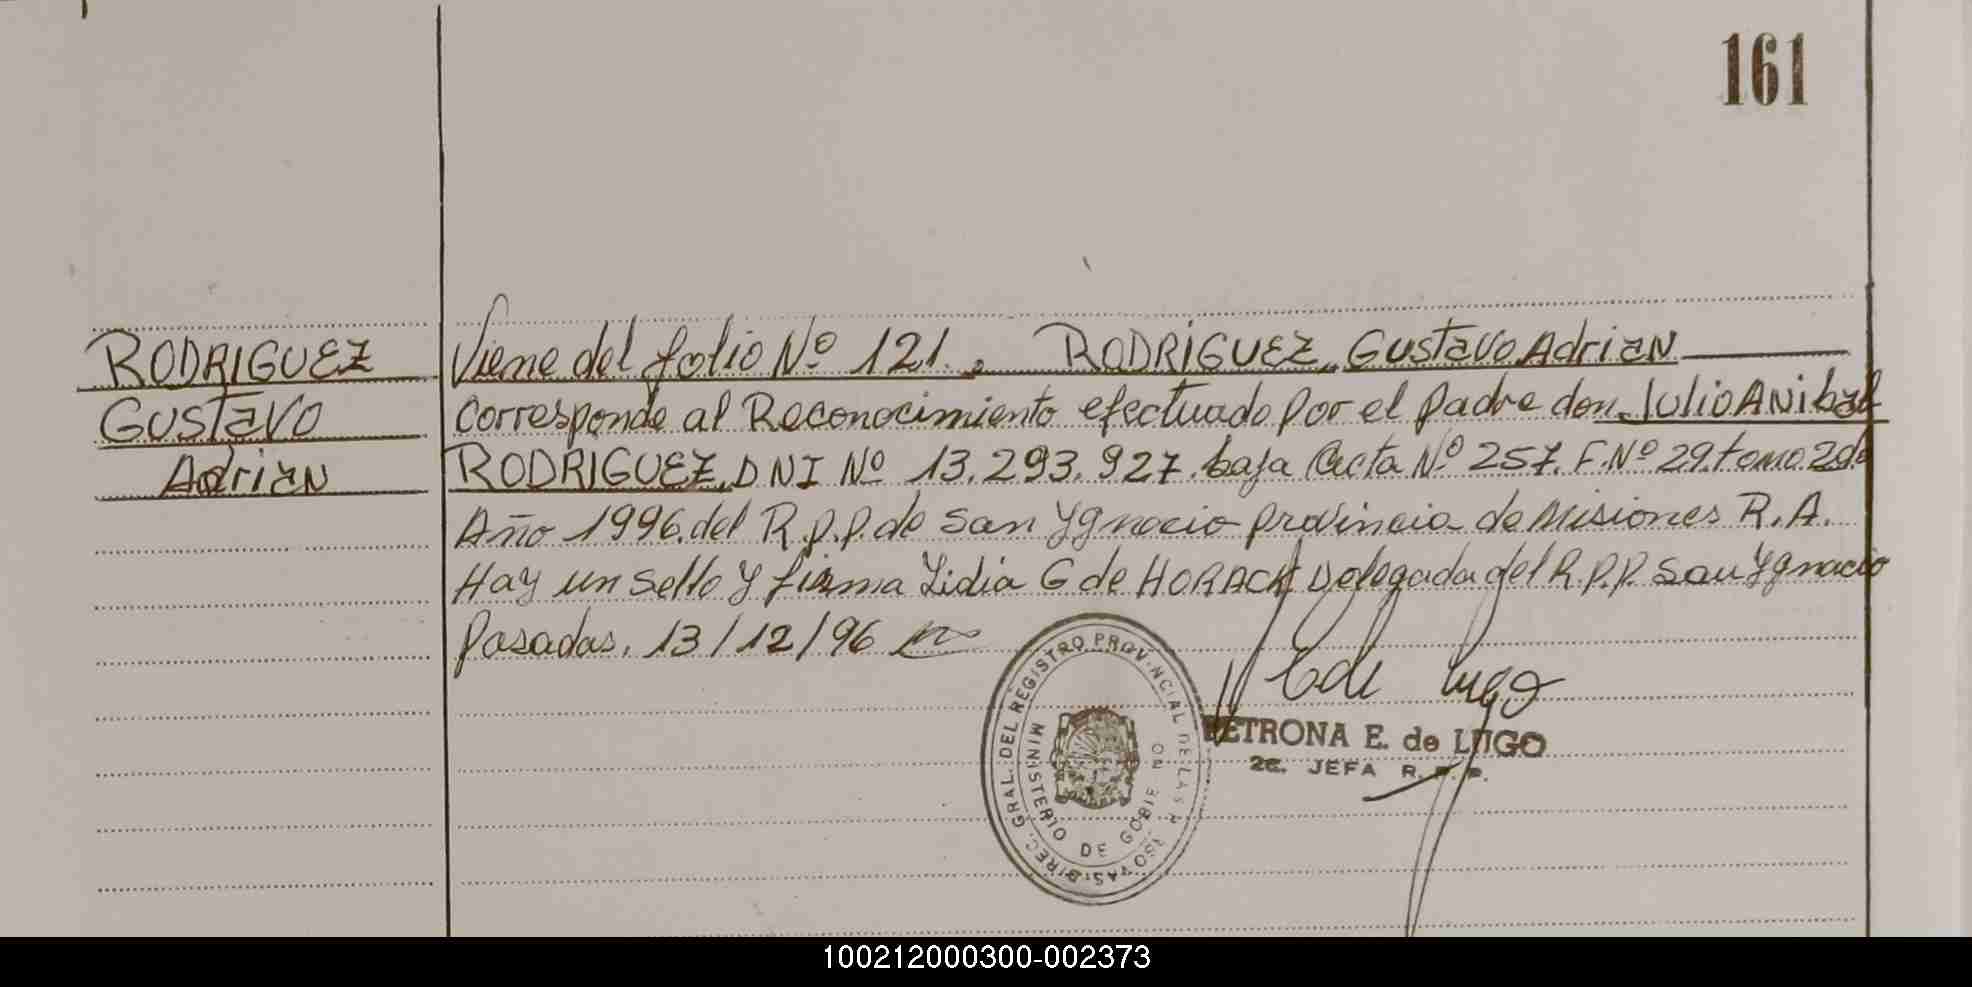 161
RODRIGUEZ
Gustavo
Adrian
Viene del folio Nº 121., RODRIGUEZ, Gustavo Adrian
corresponde al Reconocimiento efectuado por el padre don Julio Anibal
RODRIGUEZ, DNI Nº 13.293.927. baja Acta Nº 257. F. Nº 29. tomo 2do
Año 1996. del R.P.P. de San Ygnacio provincia de Misiones R.A.
Hay un Sello y firma Lidia G de HORACK Delegada del R.P.P. San Ygnacio
Posadas, 13/12/96
DIREC. GRAL. DEL REGISTRO PROVINCIAL DE LAS PERSONAS
MINISTERIO DE GOBIERNO
E de Lugo
PETRONA E. de LUGO
2a. JEFA R. P. P.
100212000300-002373